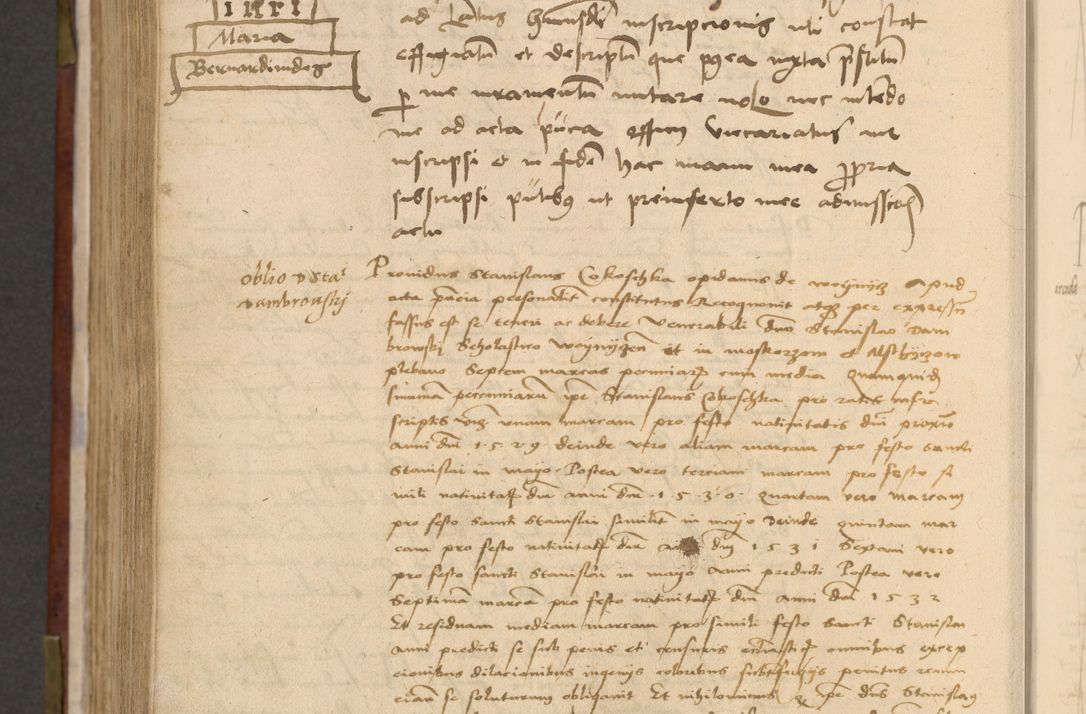 Maria
Bernardindes
ad Latus huiusdi inscripcionis uti constat
effigiatu et descriptu que postea iuxta prestitu
per me iuramentu mutare nolo nec intedo
me ad acta pnca officij Vicariatus me
inscripsi et in fide hac manu mea propria
subscripsi pntibus ut preinserto mee admissionis
actu
oblio D Sta
Dambrowskj
Prouidus Stanislaus Cokoschka opidanus de woynycz Apud
acta pncia personalit constitutus Recognouit atque per expressum
fassus est se teneri ac debere Venerabili dno Stanislao Dam
browskj Scholastico woynyczen et in moskorzow et
plebano Septem marcas pecuniarum cum media quamquidem
summam peccuniarum ipse Stanislaus Cokoschka pro ratis infra
scriptis viz vnam marcam pro festo natiuitatis dni proximo
anni dni 1529 deinde vero aliam marcam pro festo sancti
Stanislai in mayo Postea vero terciam marcam pro festo si
mili natiuitatis dni anni dni 1530 quartam vero marcam
pro festo sancti Stanislai similit in mayo deinde quintam mar
cam pro festo natiuitatis dni dni 1531 Sextam vero
pro festo sancti Stanislai in mayo anni predicti Postea vero
Septimam marcam pro festo natiuitatis dni anni dni 1532
Et residuam mediam marcam pro simili festo Sancti Stanislai
anni predicti se sub penis et censuris ecclesiasticis omnibus excep
cionibus dilacionibus ingenijs coloribus subterfugijs penitus
se soluturum obligauit Et nihilominus ipse dns Stanislaus